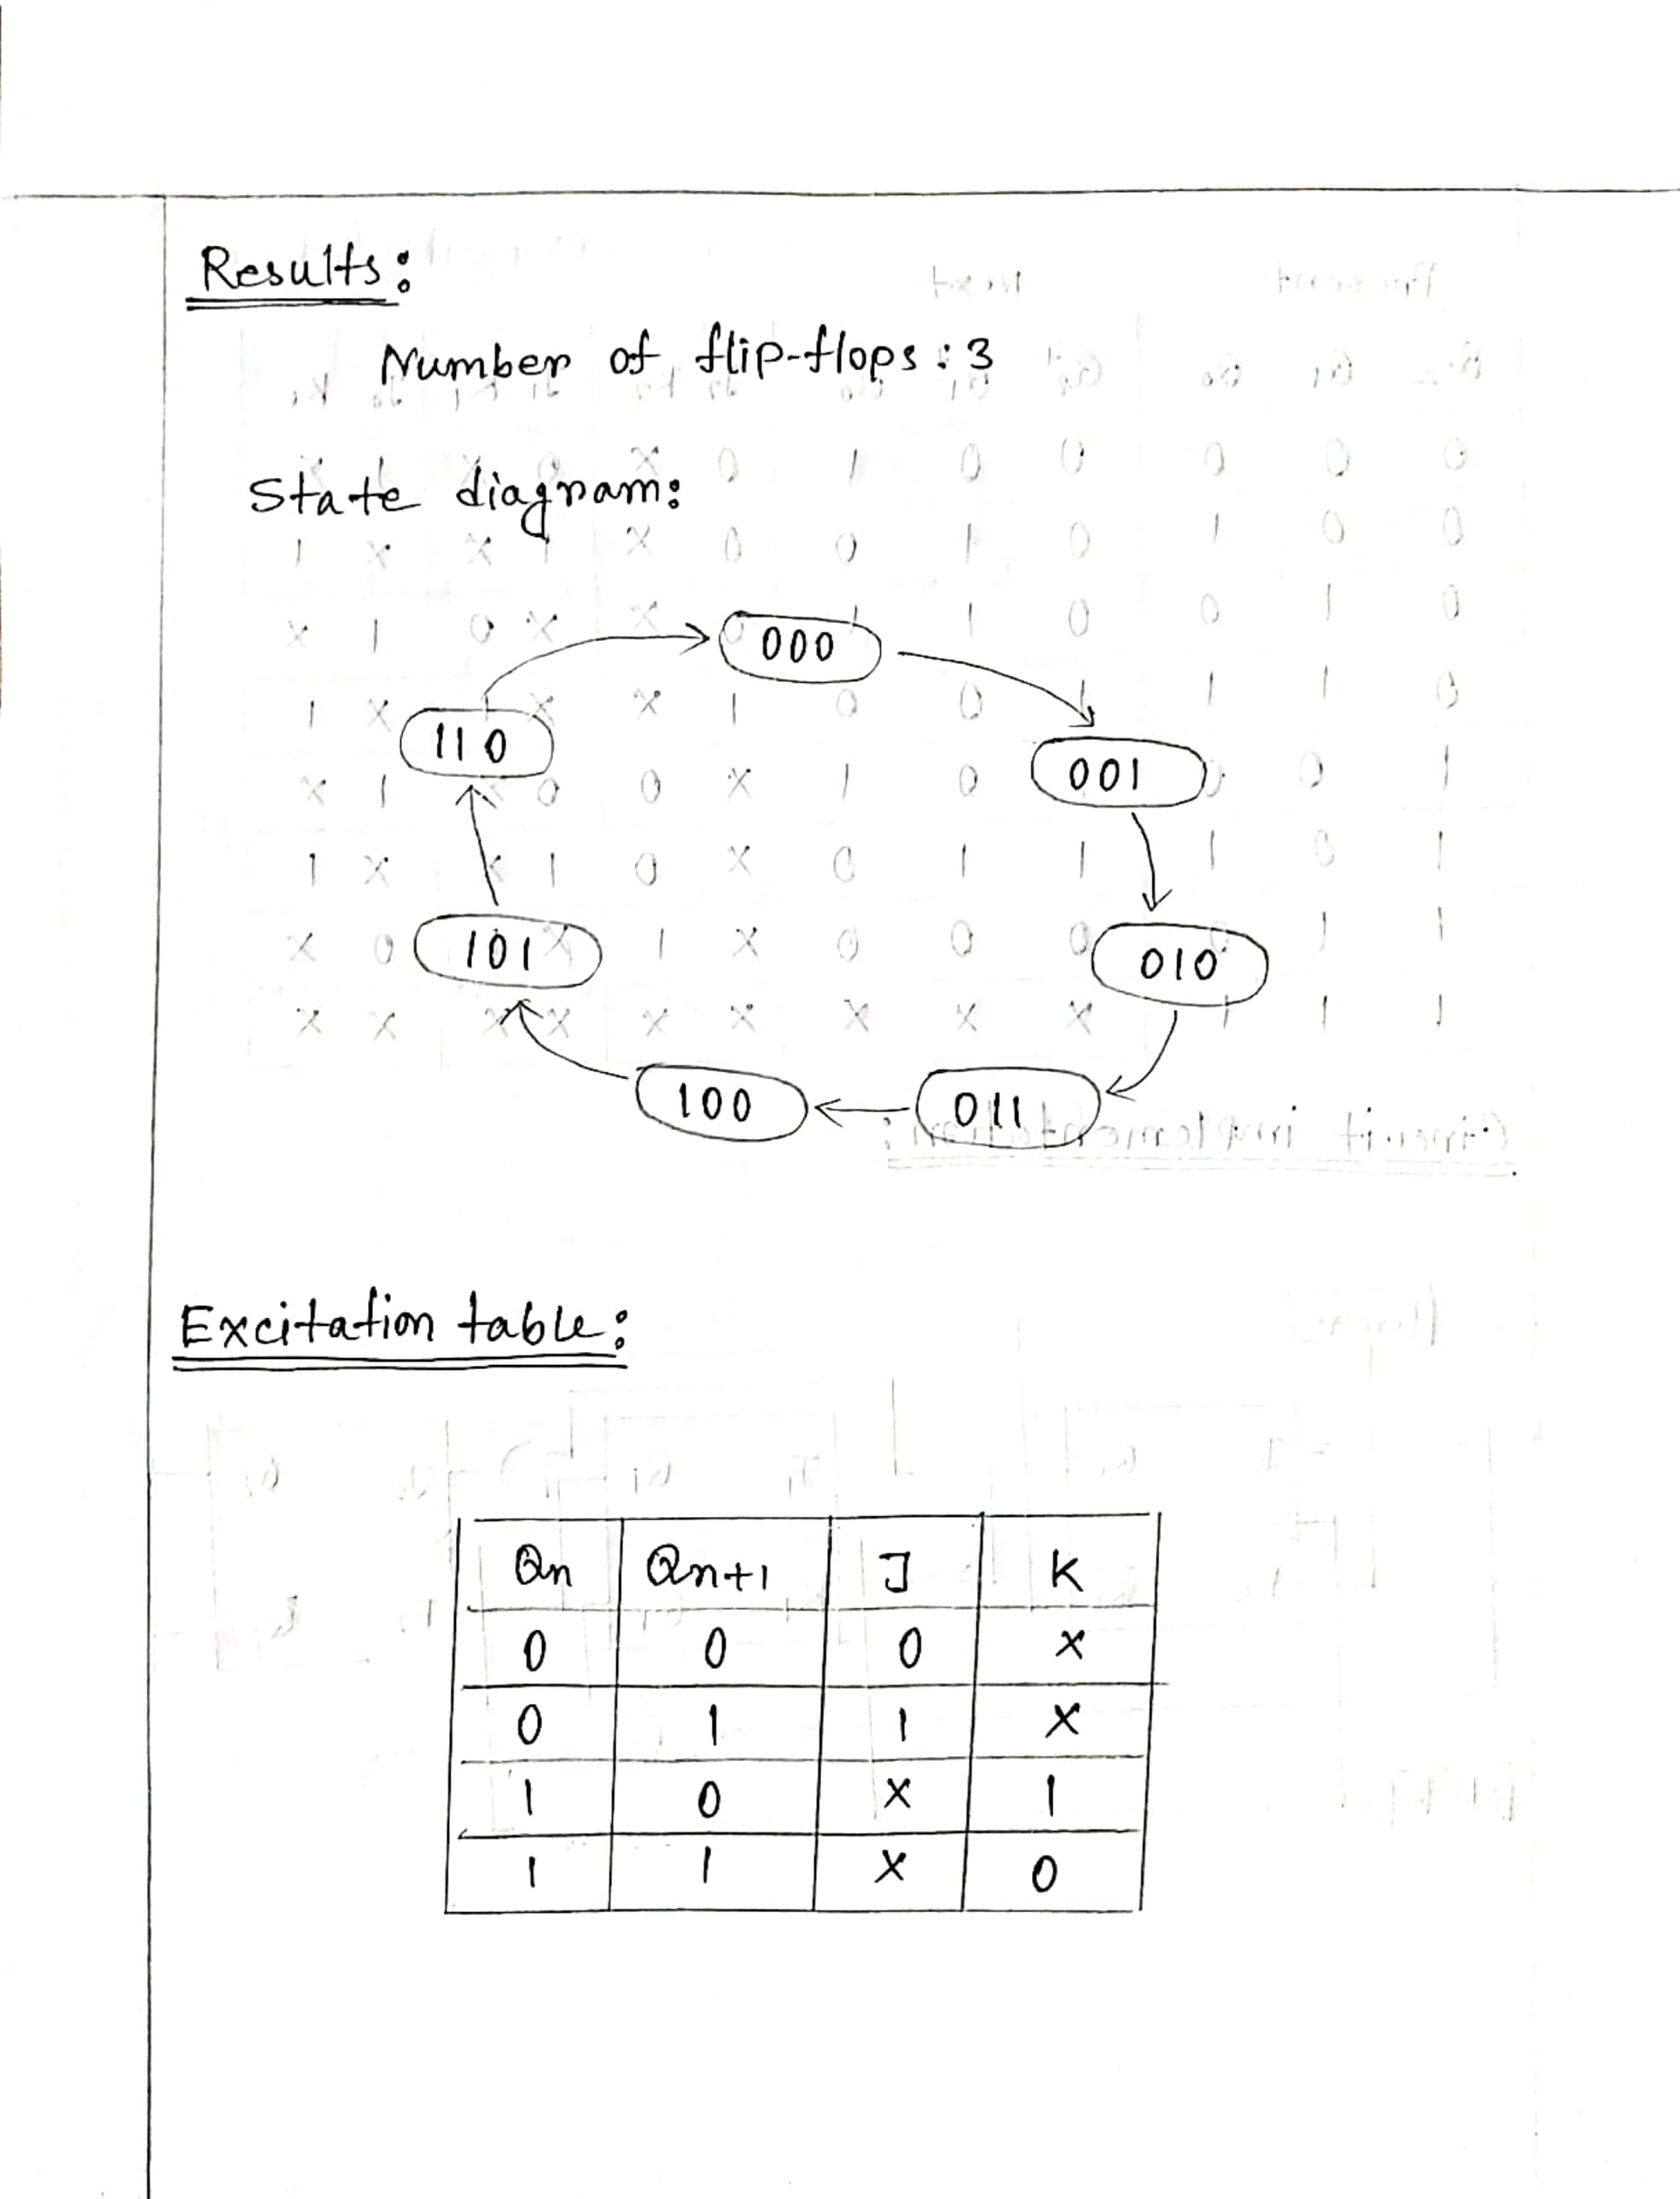 Results:
Number of flip-flops: 3
State diagram:
000
110
001
101
010
100
011
Excitation table:
Qn Qn+1 J K
0 0 0 x
0 1 1 x
1 0 x 1
1 1 x 0